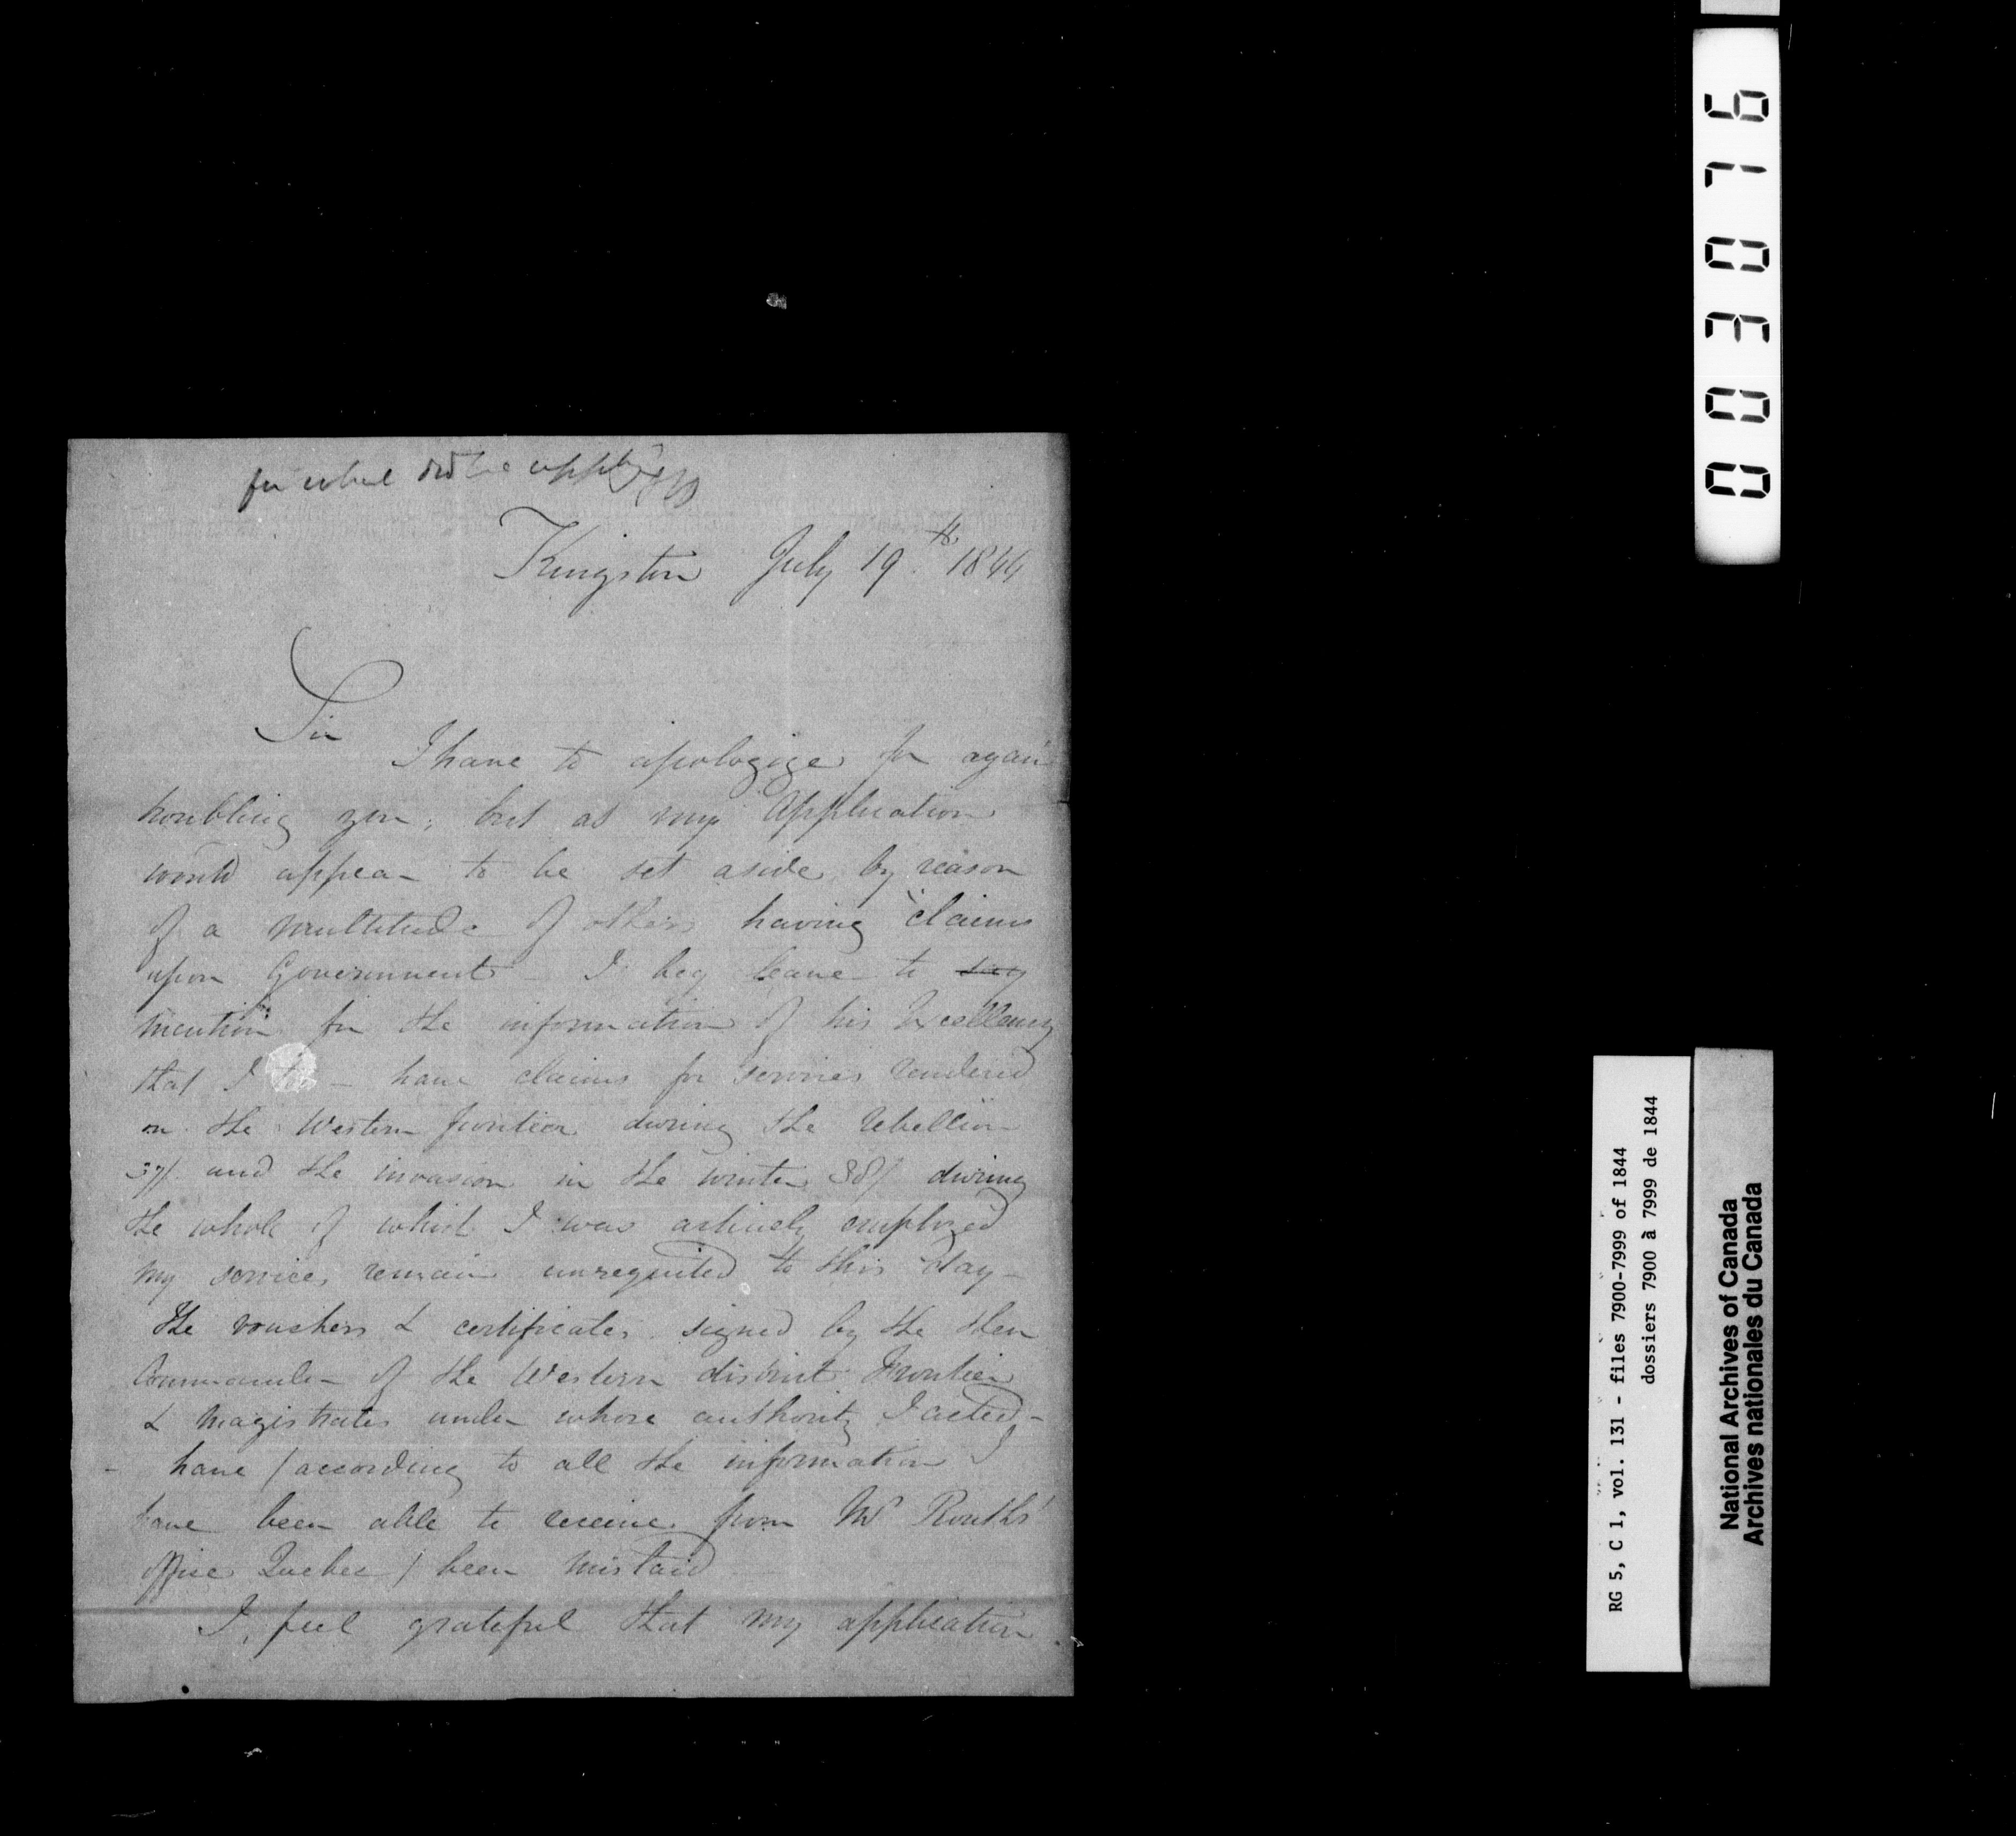 for what did he apply
Kingston July 19th. 1844
Sir
I have to apologize for again
troubling you; but as my Application
would appear to be set aside by reason
of a multitude of others having claims
upon Government - I beg leave to say
mention for the information of his Excellency
that I - have claims for services rendered
on the Western frontier during the rebellion
37/. and the invasion in the winter 38/ during
the whole of which I was actively employed
my services remain unrequited to this day -
The vouchers & certificates signed by the then
Commander of the Western district Frontier
& magistrates under whose authority I acted -
- have / according to all the information I
have been able to receive from Mr Rouths'
office Quebec / been mislaid
I feel grateful that my application
003076
RG 5, C 1, vol. 131 - files 7900-7999 of 1844
dossiers 7900 à 7999 de 1844
National Archives of Canada
Archives nationales du Canada